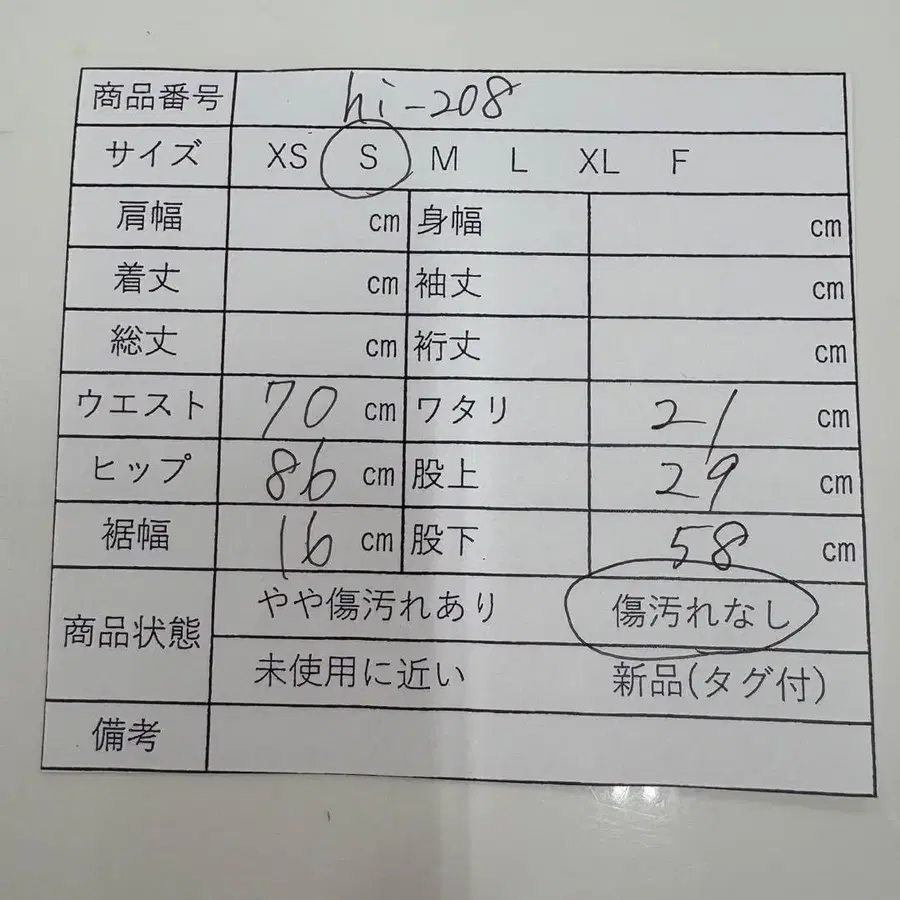 商品番号 hi-208
サイズ XS S M L XL F
肩幅 cm 身幅 cm
着丈 cm 袖丈 cm
総丈 cm 裄丈 cm
ウエスト 70 cm ワタリ 21 cm
ヒップ 86 cm 股上 29 cm
裾幅 16 cm 股下 58 cm
商品状態 やや傷汚れあり 傷汚れなし
未使用に近い 新品(タグ付)
備考